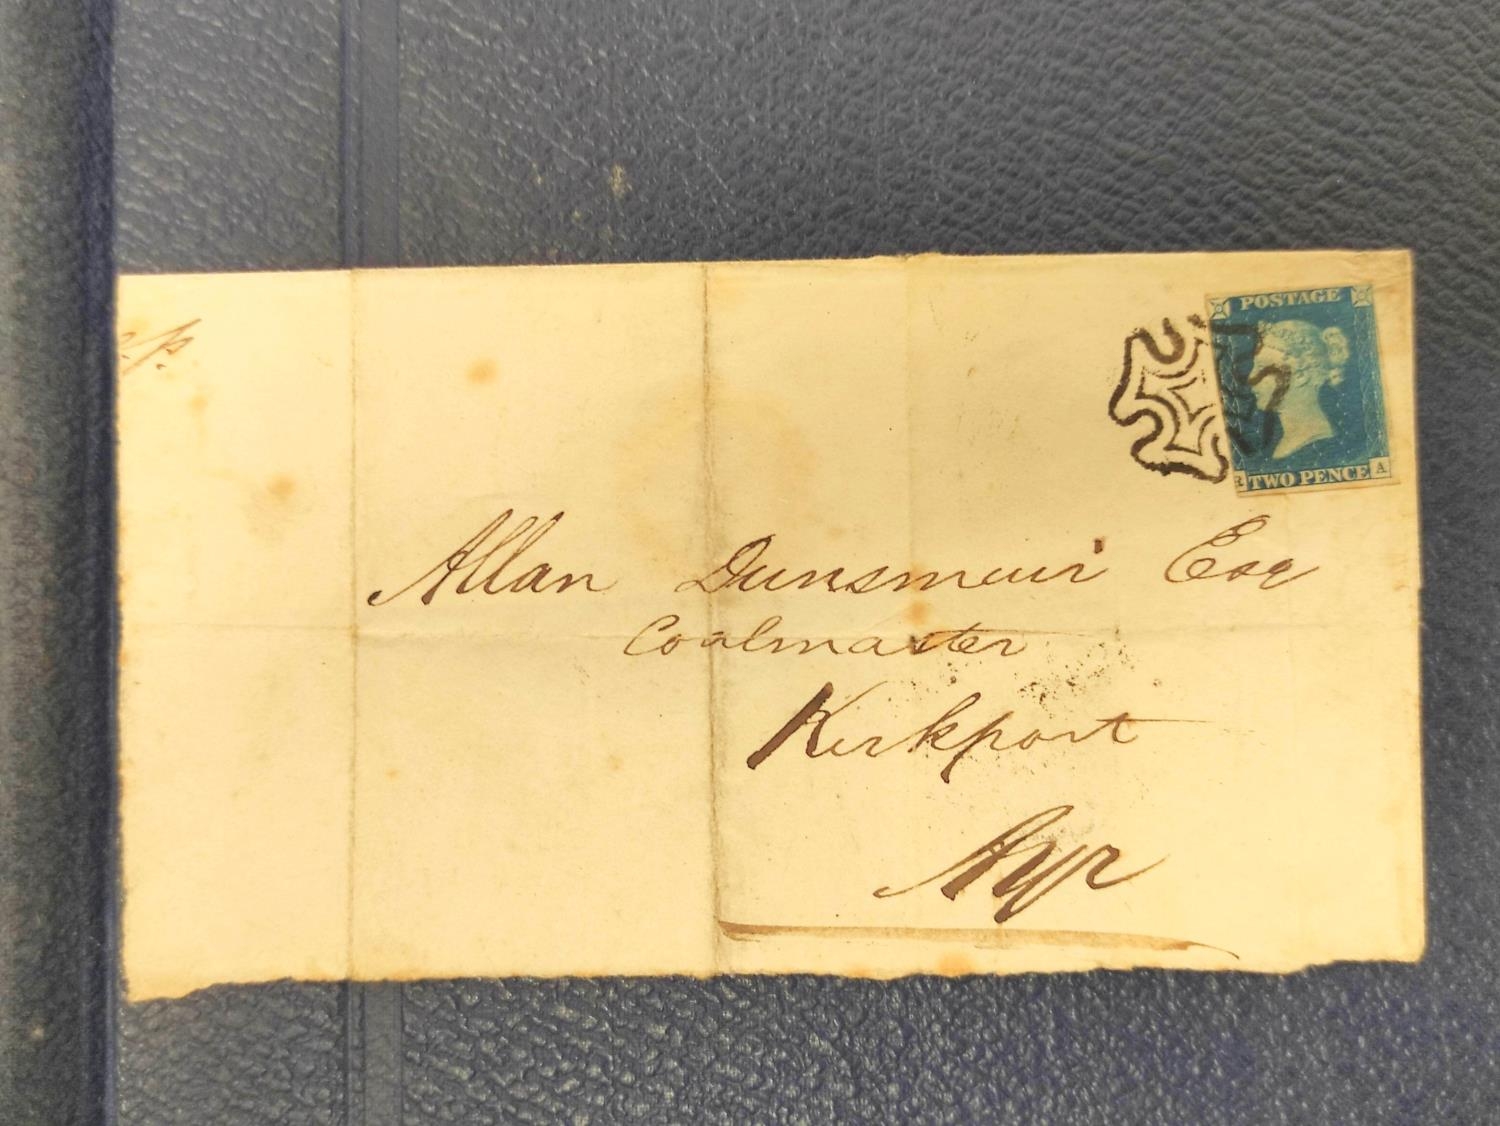 POSTAGE
R TWO PENCE A
Allan Dunsmuir Esq
Coalmaster
Kirkport
Ayr